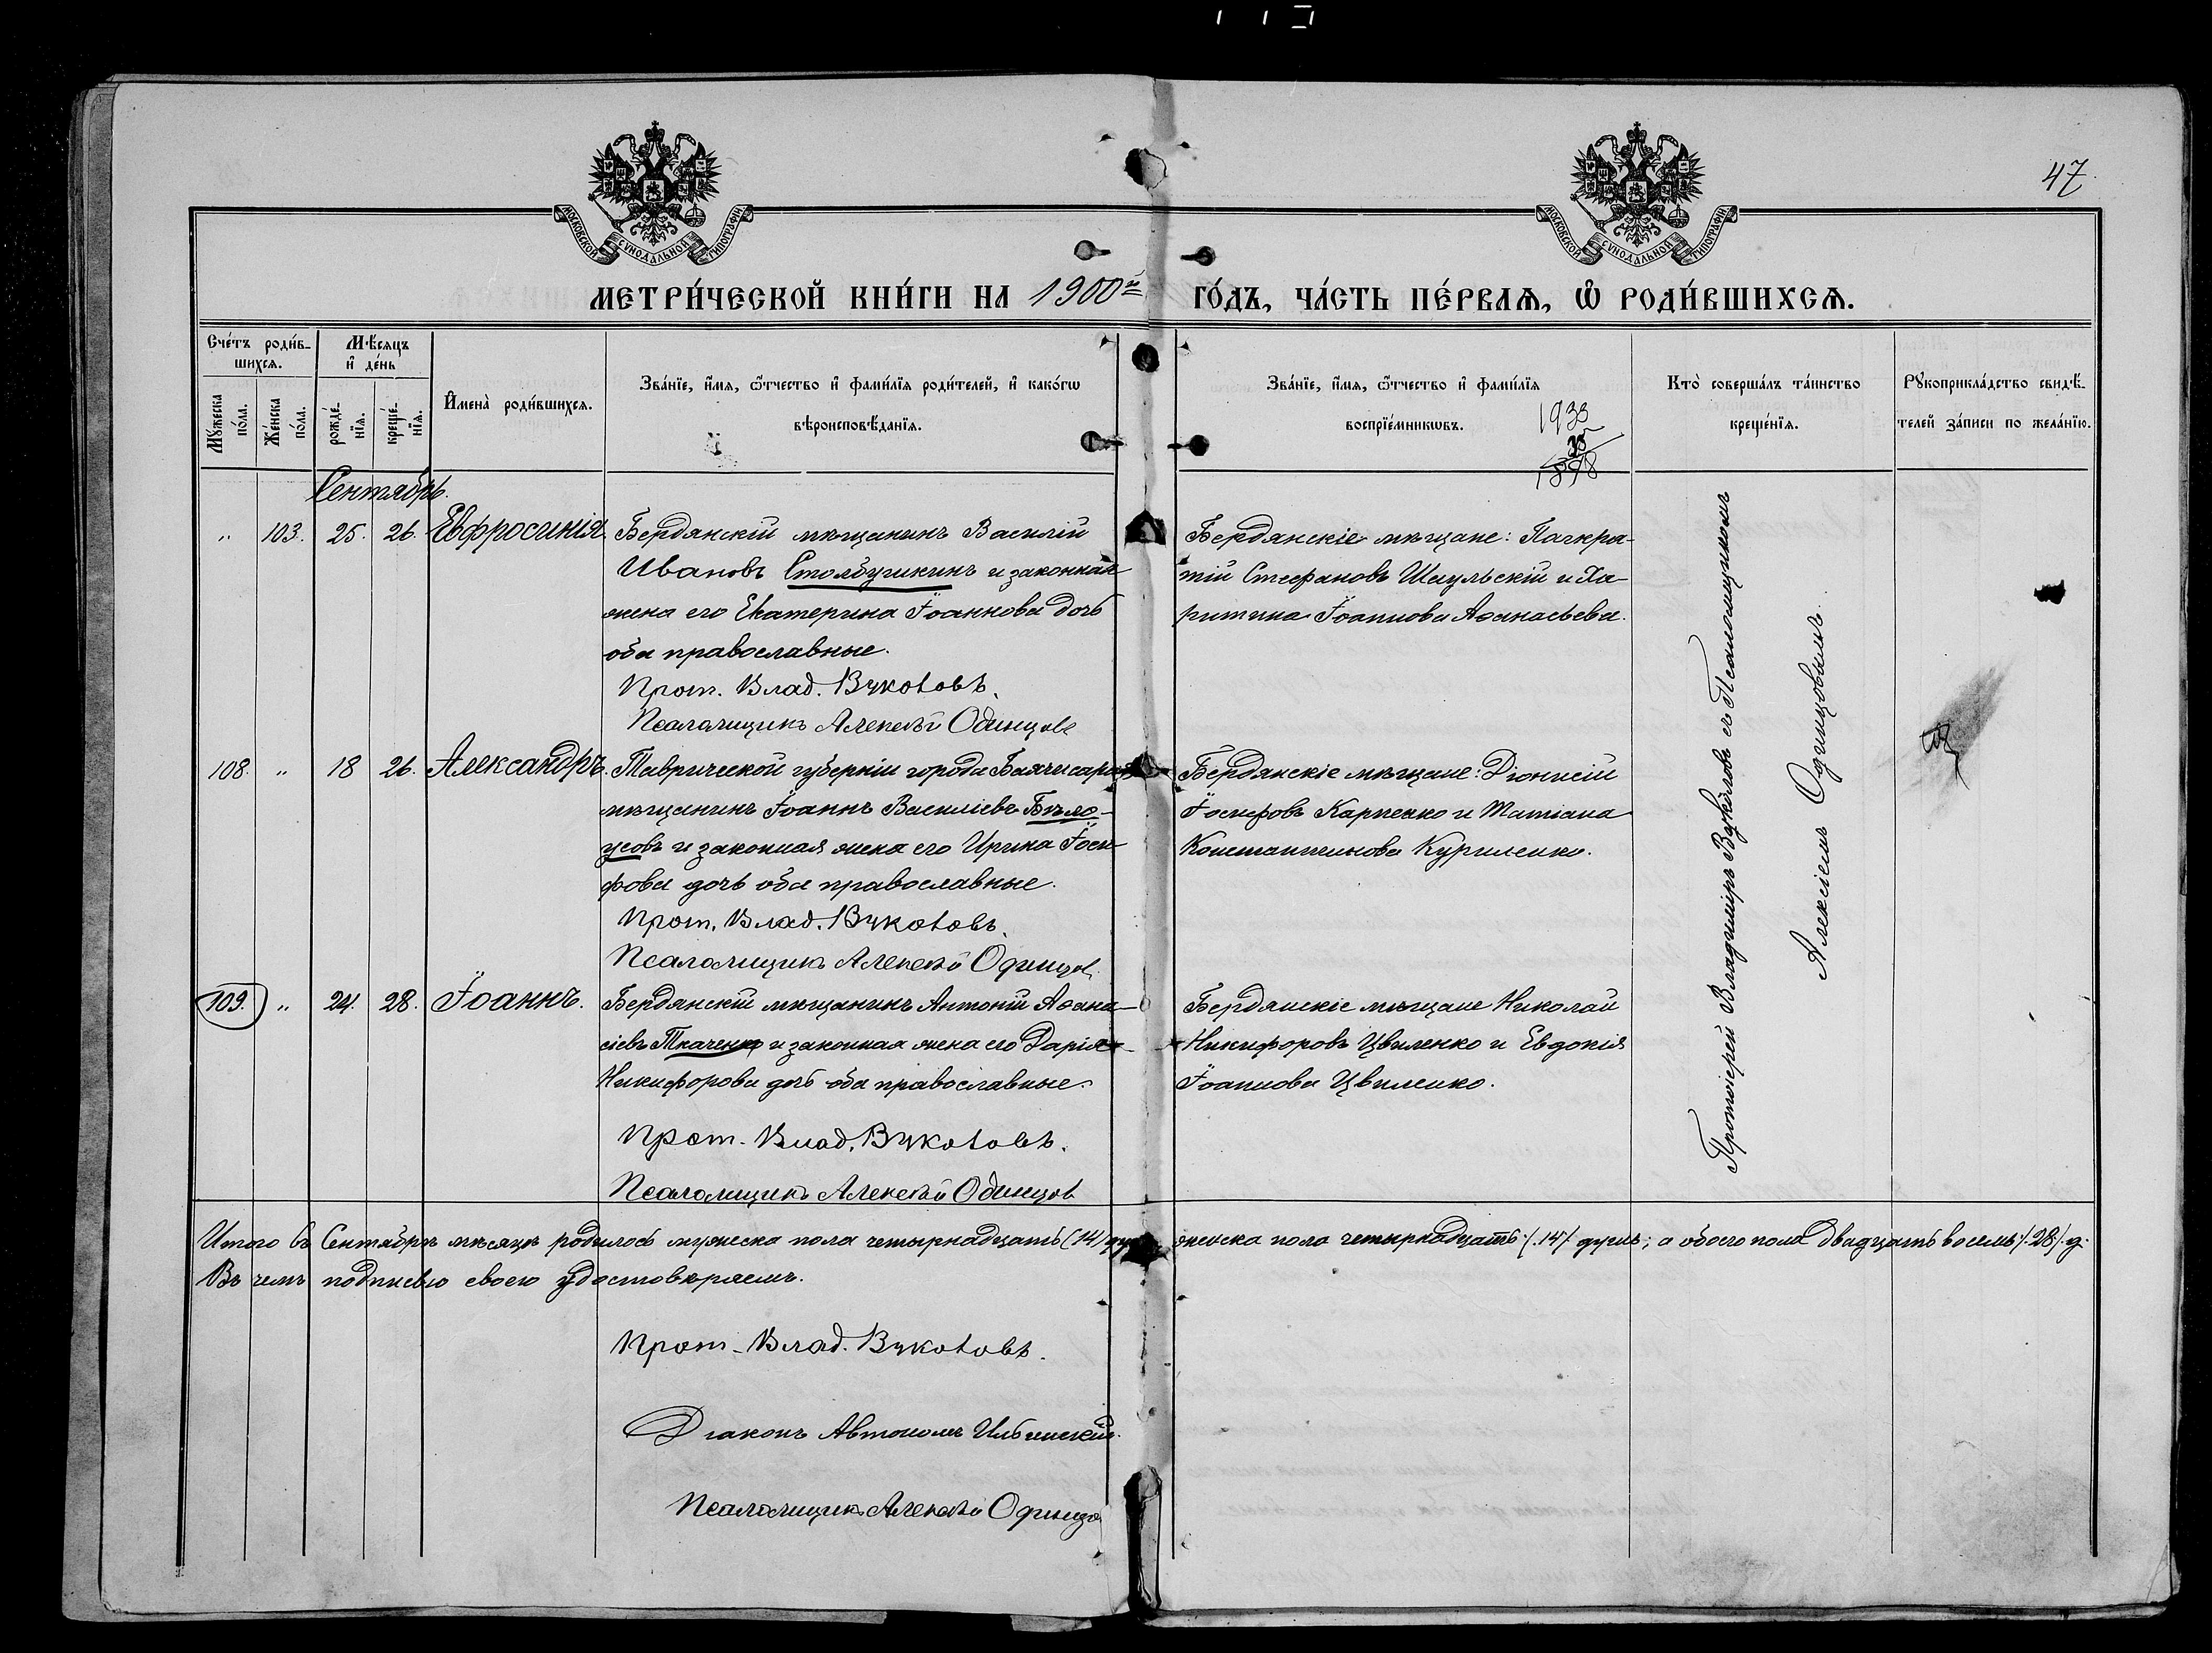 47
МОСКОВСКОЙ СѴНОДАЛЬНОЙ ТИПОГРАФІИ
МОСКОВСКОЙ СѴНОДАЛЬНОЙ ТИПОГРАФІИ
МЕТРИ́ЧЕСКОЙ КНИ́ГИ НА 1900й ГО́ДЪ, ЧА́СТЬ ПЕ́РВАѦ, Ѽ РОДИ́ВШИХСѦ.
Сче́тъ роди́в-
шихсѧ.
Мꙋ́жеска по́ла.
Же́нска по́ла.
Мѣ́сѧцъ
и҆ де́нь
рожде́-
нїѧ.
креще́-
нїѧ.
И҆мена̀ роди́вшихсѧ.
Зва́нїе, и҆́мѧ, ѻ҆́тчество и҆ фами́лїѧ роди́телей, и҆ како́гѡ
вѣроисповѣ́данїѧ.
Зва́нїе, и҆́мѧ, ѻ҆́тчество и҆ фами́лїѧ
воспрїе́мникѡвъ.
1933
1898
Кто̀ соверша́лъ та́инство
креще́нїѧ.
Рꙋкоприкла́дство свидѣ́-
телей за́писи по жела́нїю.
Сентябрь.
" 103. 25. 26. Евфросинія.
Бердянскій мѣщанинъ Василій
Ивановъ Столбушкинъ и законная
жена его Екатерина Іоаннова дочь
оба православные.
Прот. Влад. Вукотовъ.
Псаломщикъ Алексѣй Одинцовъ
Бердянскіе мѣщане: Панкра-
тій Стефановъ Шаульскій и Ха-
ритина Іоаннова Аѳанасьева.
108. " 18 26. Александръ.
Таврической губерніи города Бахчисарая
мѣщанинъ Іоаннъ Василіевъ Бѣло-
усовъ и законная жена его Ирина Іоси-
фова дочь оба православные.
Прот. Влад. Вукотовъ.
Псаломщикъ Алексѣй Одинцов
Бердянскіе мѣщане: Діонисій
Іосифовъ Карпенко и Татіана
Константинова Куриленко.
109. " 24. 28. Іоаннъ.
Бердянскій мѣщанинъ Антоній Аѳана-
сіевъ Ткаченко и законная жена его Дарія
Никифорова дочь оба православные.
Прот. Влад. Вукотовъ.
Псаломщикъ Алексѣй Одинцов
Бердянскіе мѣщане Николай
Никифоровъ Цвиленко и Евдокія
Іоаннова Цвиленко.
Протоіерей Владиміръ Вукотовъ съ Псаломщикомъ
Алексіемъ Одинцовымъ.
Итого въ Сентябрѣ мѣсяцѣ родилось мужеска пола четырнадцать (14) женска пола четырнадцать /.14/. душъ; а обоего пола двадцать восемь /.28/. д.
Въ чемъ подписью своею удостовѣряемъ.
Прот. Влад. Вукотовъ.
Діаконъ Автономъ Ильинскій.
Псаломщикъ Алексѣй Одинцо